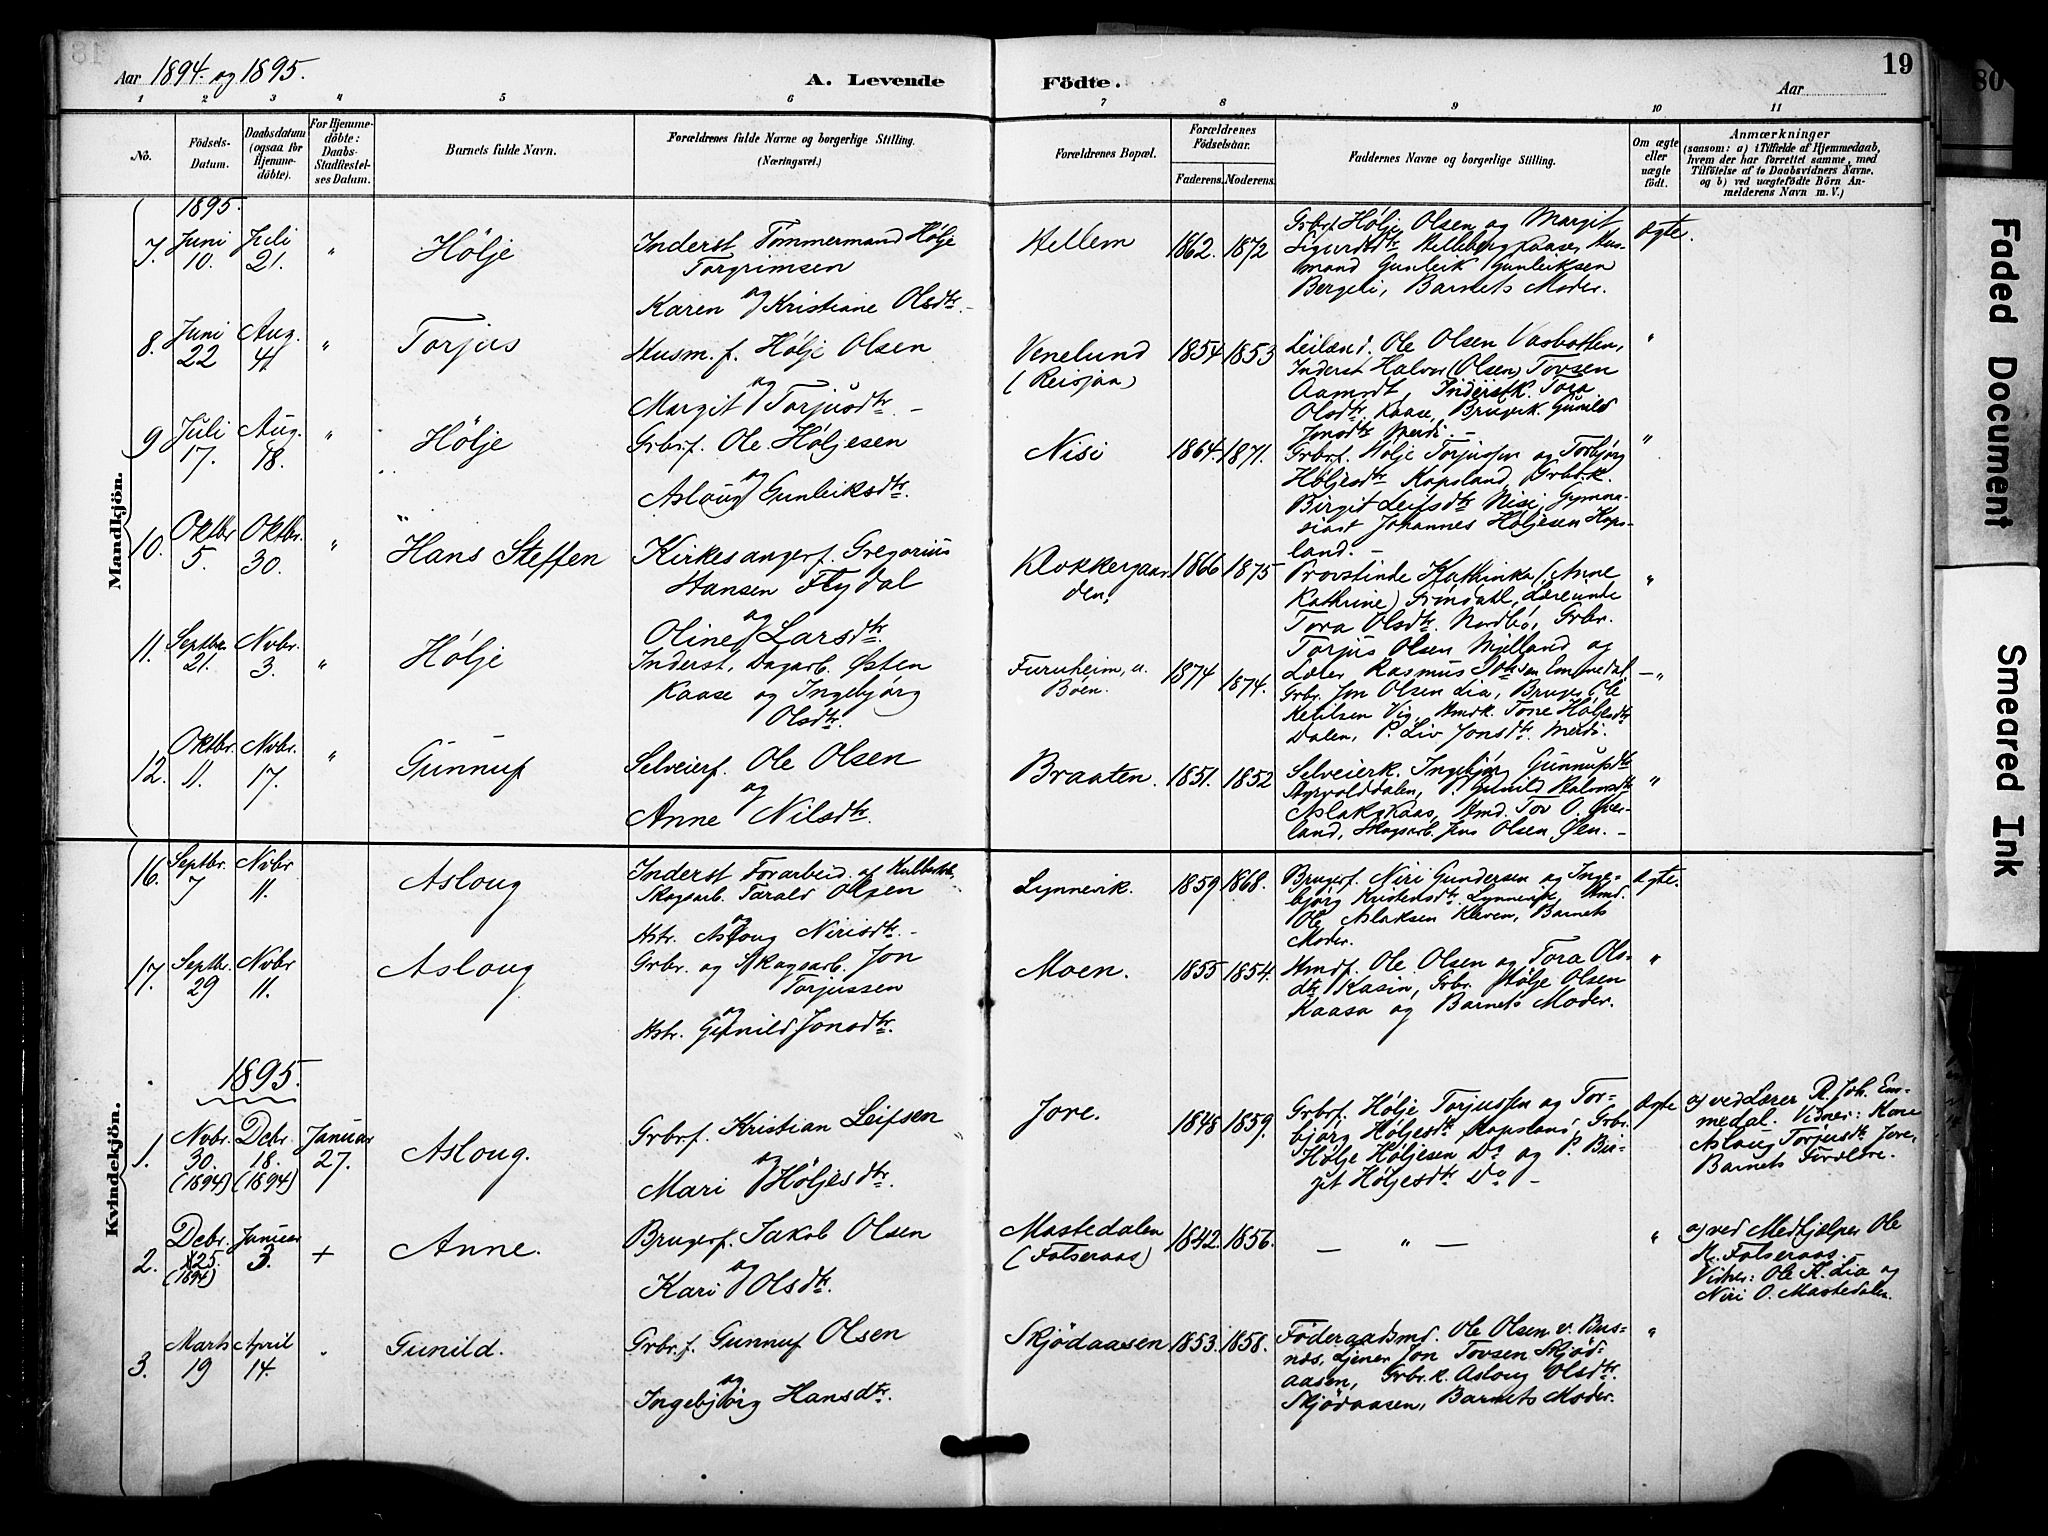 18
Aar 1894. og 1895.
A. Levende
Födte.
Aar
19
80
1 2 3 4 5 6 7 8 9 10 11
No.
Födsels-
Datum.
Daabsdatum
(ogsaa for
Hjemme-
döbte).
For Hjemme-
döbte:
Daabs-
Stadfæstel-
ses Datum.
Barnets fulde Navn.
Forældrenes fulde Navne og borgerlige Stilling.
(Næringsvei.)
Forældrenes Bopæl.
Forældrenes
Födselsaar.
Faderens. Moderens.
Faddernes Navne og borgerlige Stilling.
Om ægte
eller
uægte
födt.
Anmærkninger
(saasom: a) i Tilfælde af Hjemmedaab,
hvem der har forrettet samme, med
Tilföielse af to Daabsvidners Navne,
og b) ved uægtefödte Börn An-
melderens Navn m. V.)
Mandkjön.
1895.
7. Juni 10. Juli 21. " Hölje
Inderst Tömmermand Hölje
Torgrimsen
og
Karen Kristiane Olsdtr.
Hellem 1862. 1872
Grbrf. Hölje Olsen og Margit
Sigurdsdtr Helleberg Kaase, Hus-
mand Gunleik Gunleiksen
Bergeli, Barnets Moder.
ægte.
8. Juni 22 Aug. 4 " Torjus
Husm. f. Hölje Olsen
og
Margit Torjusdtr. -
Venelund
(Reisjaa)
1854 1853
Leiland. Ole Olsen Vasbotten,
Inderst Halvor (Olsen) Tovsen
Aamodt, Inderstk. Tora
Olsdtr. Kaase, Brugerk. Gunild
Jonsdtr Merdi. -
"
9 Juli 17. Aug. 18. " Hölje
Grbrf. Ole Höljesen
og
Asloug Gunleiksdtr.
Nisi 1864. 1871.
Grbrf. Hölje Torjussen og Torbjörg
Höljesdtr Kopsland, Grbr.k.
Birgit Leifsdtr Nisi, Gymna-
siast Johannes Höljesen Kops-
land. -
"
10. Oktbr 5. Oktbr. 30. " Hans Steffen
Kirkesangerf. Gregorius
Hansen Flydal
og
Oline Larsdtr.
Klokkergaar-
den,
1866 1875
Provstinde Kathinka (Anne
Kathrine) Gröndahl, Lærerinde
Tora Olsdtr. Nordbö, Grbr.
Torjus Olsen Mjelland og
Lærer Rasmus Johsen Emmedal
"
11. Septbr. 21. Nvbr. 3. " Hölje
Inderst, Dagarb. Østen
Kaase og Ingebjörg
Olsdtr.
Furuheim, u.
Böen.
1874 1874.
Grbr. Jon Olsen Lia, Bruger Ole
Ketilsen Vig, Hmdk. Tone Höljesdtr
Dalen, P. Liv Jonsdtr. Merdi.
- "
12. Oktbr. 11. Nvbr. 17. " Gunnuf
Selveierf. Ole Olsen
og
Anne Nilsdtr.
Braaten. 1851. 1852
Selveierk. Ingebjör Gunnufsdtr
Styrvolddalen, P. Gunild Halvorsdtr
Aslakskaas, Hmd. Tov O. Över-
land, Skogsarb. Jens Olsen Øen. -
"
Kvindekjön.
16. Septbr. 7 Nvbr 11. Asloug
Inderst Forarbeid. af
Skogsarb. Tarald Olsen
og
Hstr. Asloug Nirisdtr. -
Lynnevik. 1859 1868.
Brugerf. Niri Gundersen og Inge-
björg Kristensdtr. Lynnevik, Hmd.
Ole Aslaksen Kleven, Barnets
Moder.
ægte.
17. Septbr. 29 Nvbr 11. Asloug
Grbr. og Skogsarb. Jon
Torjussen
og
Hstr. Gunild Jonsdtr.
Moen. 1855 1854.
Hmdf. Ole Olsen og Tora Ols-
dtr Kasin, Grbr. Hölje Olsen
Kaasa og Barnets Moder.
"
1895.
1. Nvbr. 30. (1894) Dcbr. 18. (1894) Januar 27. Asloug.
Grbrf. Kristian Leifsen
og
Mari Höljesdtr.
Jore. 1848 1859.
Grbrf. Hölje Torjussen og Tor-
björg Höljesdtr Kopsland, Grbr.
Hölje Höljesen Do og P. Bir-
git Höljesdtr Do -
ægte
a) ved Lærer R. Joh. Em-
medal. Vidner: Kone
Asloug Torjusdtr Jore,
Barnets Forældre.
2. Dcbr. 25. (1894) Januar 3. + Anne.
Brugerf. Jakob Olsen
og
Kari Olsdtr.
Mastedalen
(Folseraas)
1842. 1856.
— " —
"
a) ved Medhjælper Ole
K. Folseraas.
Vidner: Ole K. Lia og
Niri O. Mastedalen.
3. Marts 19 April 14. " Gunild.
Grbr.f. Gunnuf Olsen
og
Ingebjörg Hansdtr.
Skjödaasen 1853. 1858.
Föderaadsmd. Ole Olsen v. Bus-
nes, Tjener Jon Tovsen Skjöd-
aasen, Grbr.k. Asloug Olsdtr.
Skjödaasen, Barnets Moder.
"
Faded Document
Smeared Ink